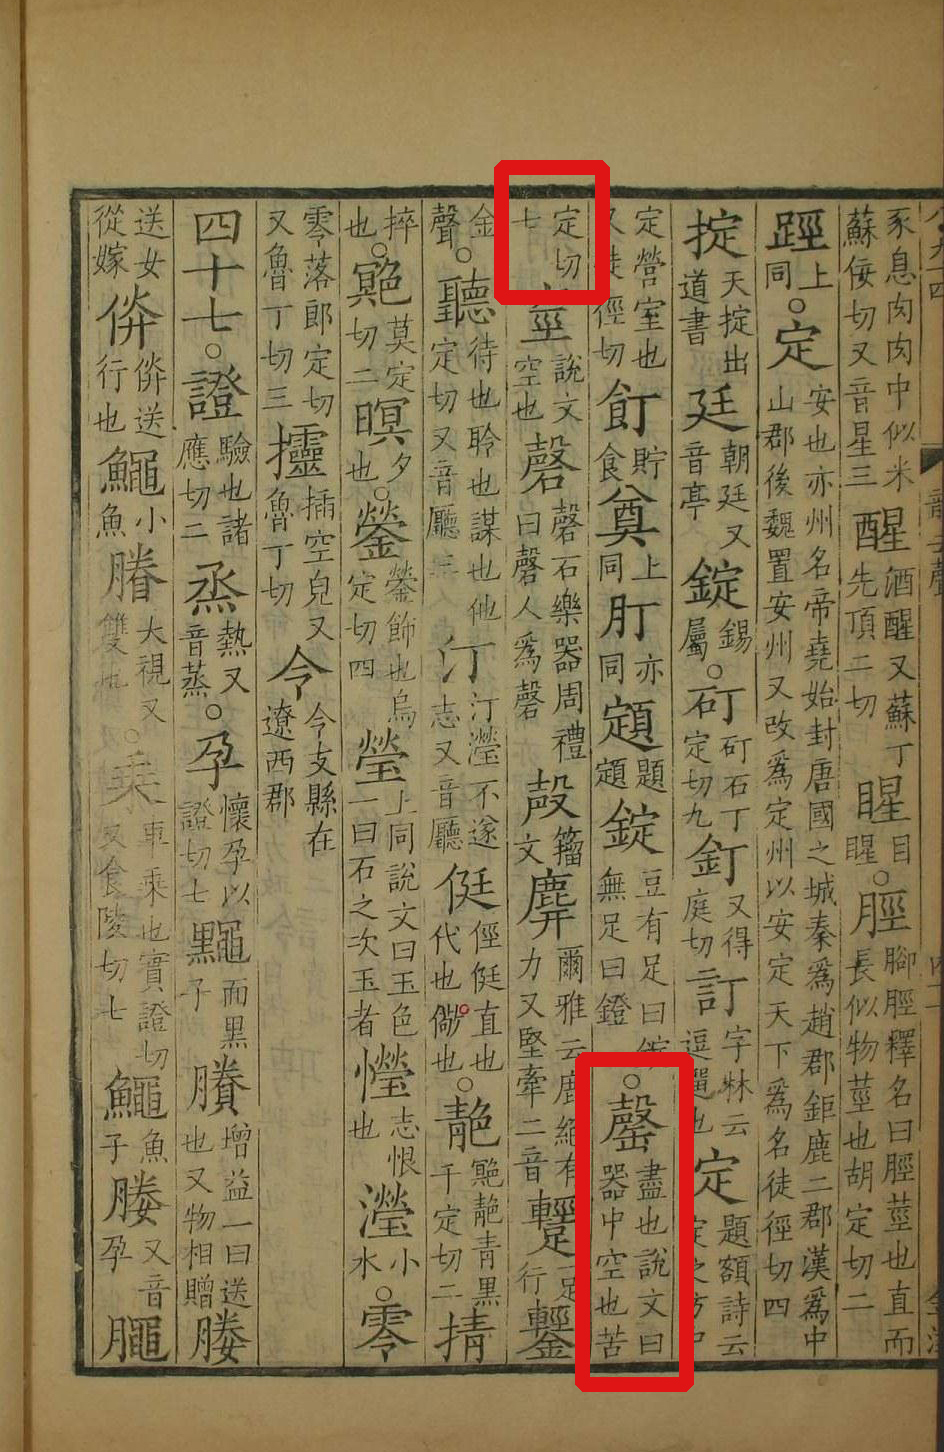 豕息肉肉中似米蘇佞切又音星三醒酒醒又蘇丁先頂二切睲目睲○脛腳脛釋名曰脛莖也直而長似物莖也胡定切二
踁上同○定安也亦州名帝堯始封唐國之城秦為趙郡鉅鹿二郡漢為中山郡後魏置安州又改為定州以安定天下為名徒徑切四
掟天掟出道書廷朝廷又音亭錠錫屬○矴矴石丁定切九釘又得庭切訂字林云逗遛也定題額詩云定之方中
定營室也又徒徑切飣貯食奠上同亦同顁題顁錠豆有足曰錠無足曰鐙○罄盡也說文曰器中空也苦
定切七說文空也磬磬石樂器周禮曰磬人爲磬殸籀文麉爾雅云鹿絕有力又堅牽二音一足行鑋
金聲○聽待也聆也謀也他定切又音廳三汀汀瀅不遂志又音廳侹俓侹直也代也也○靘靘青黑千定切二掅
捽也○莫定切二暝夕也○鎣鎣飾也烏定切四瑩上同說文曰玉色一曰石之次玉者志恨也瀅小水○零
零落郎定切又魯丁切三插空皃又魯丁切令令支縣在遼西郡
四十七○證驗也諸應切二烝熱又音蒸○孕懷孕以證切七面黑子賸增益一曰送也又物相贈媵
送女從嫁倂倂送行也鱦小魚大視又雙也○乗車乗也實證切又食陵切七鱦魚子媵又音孕